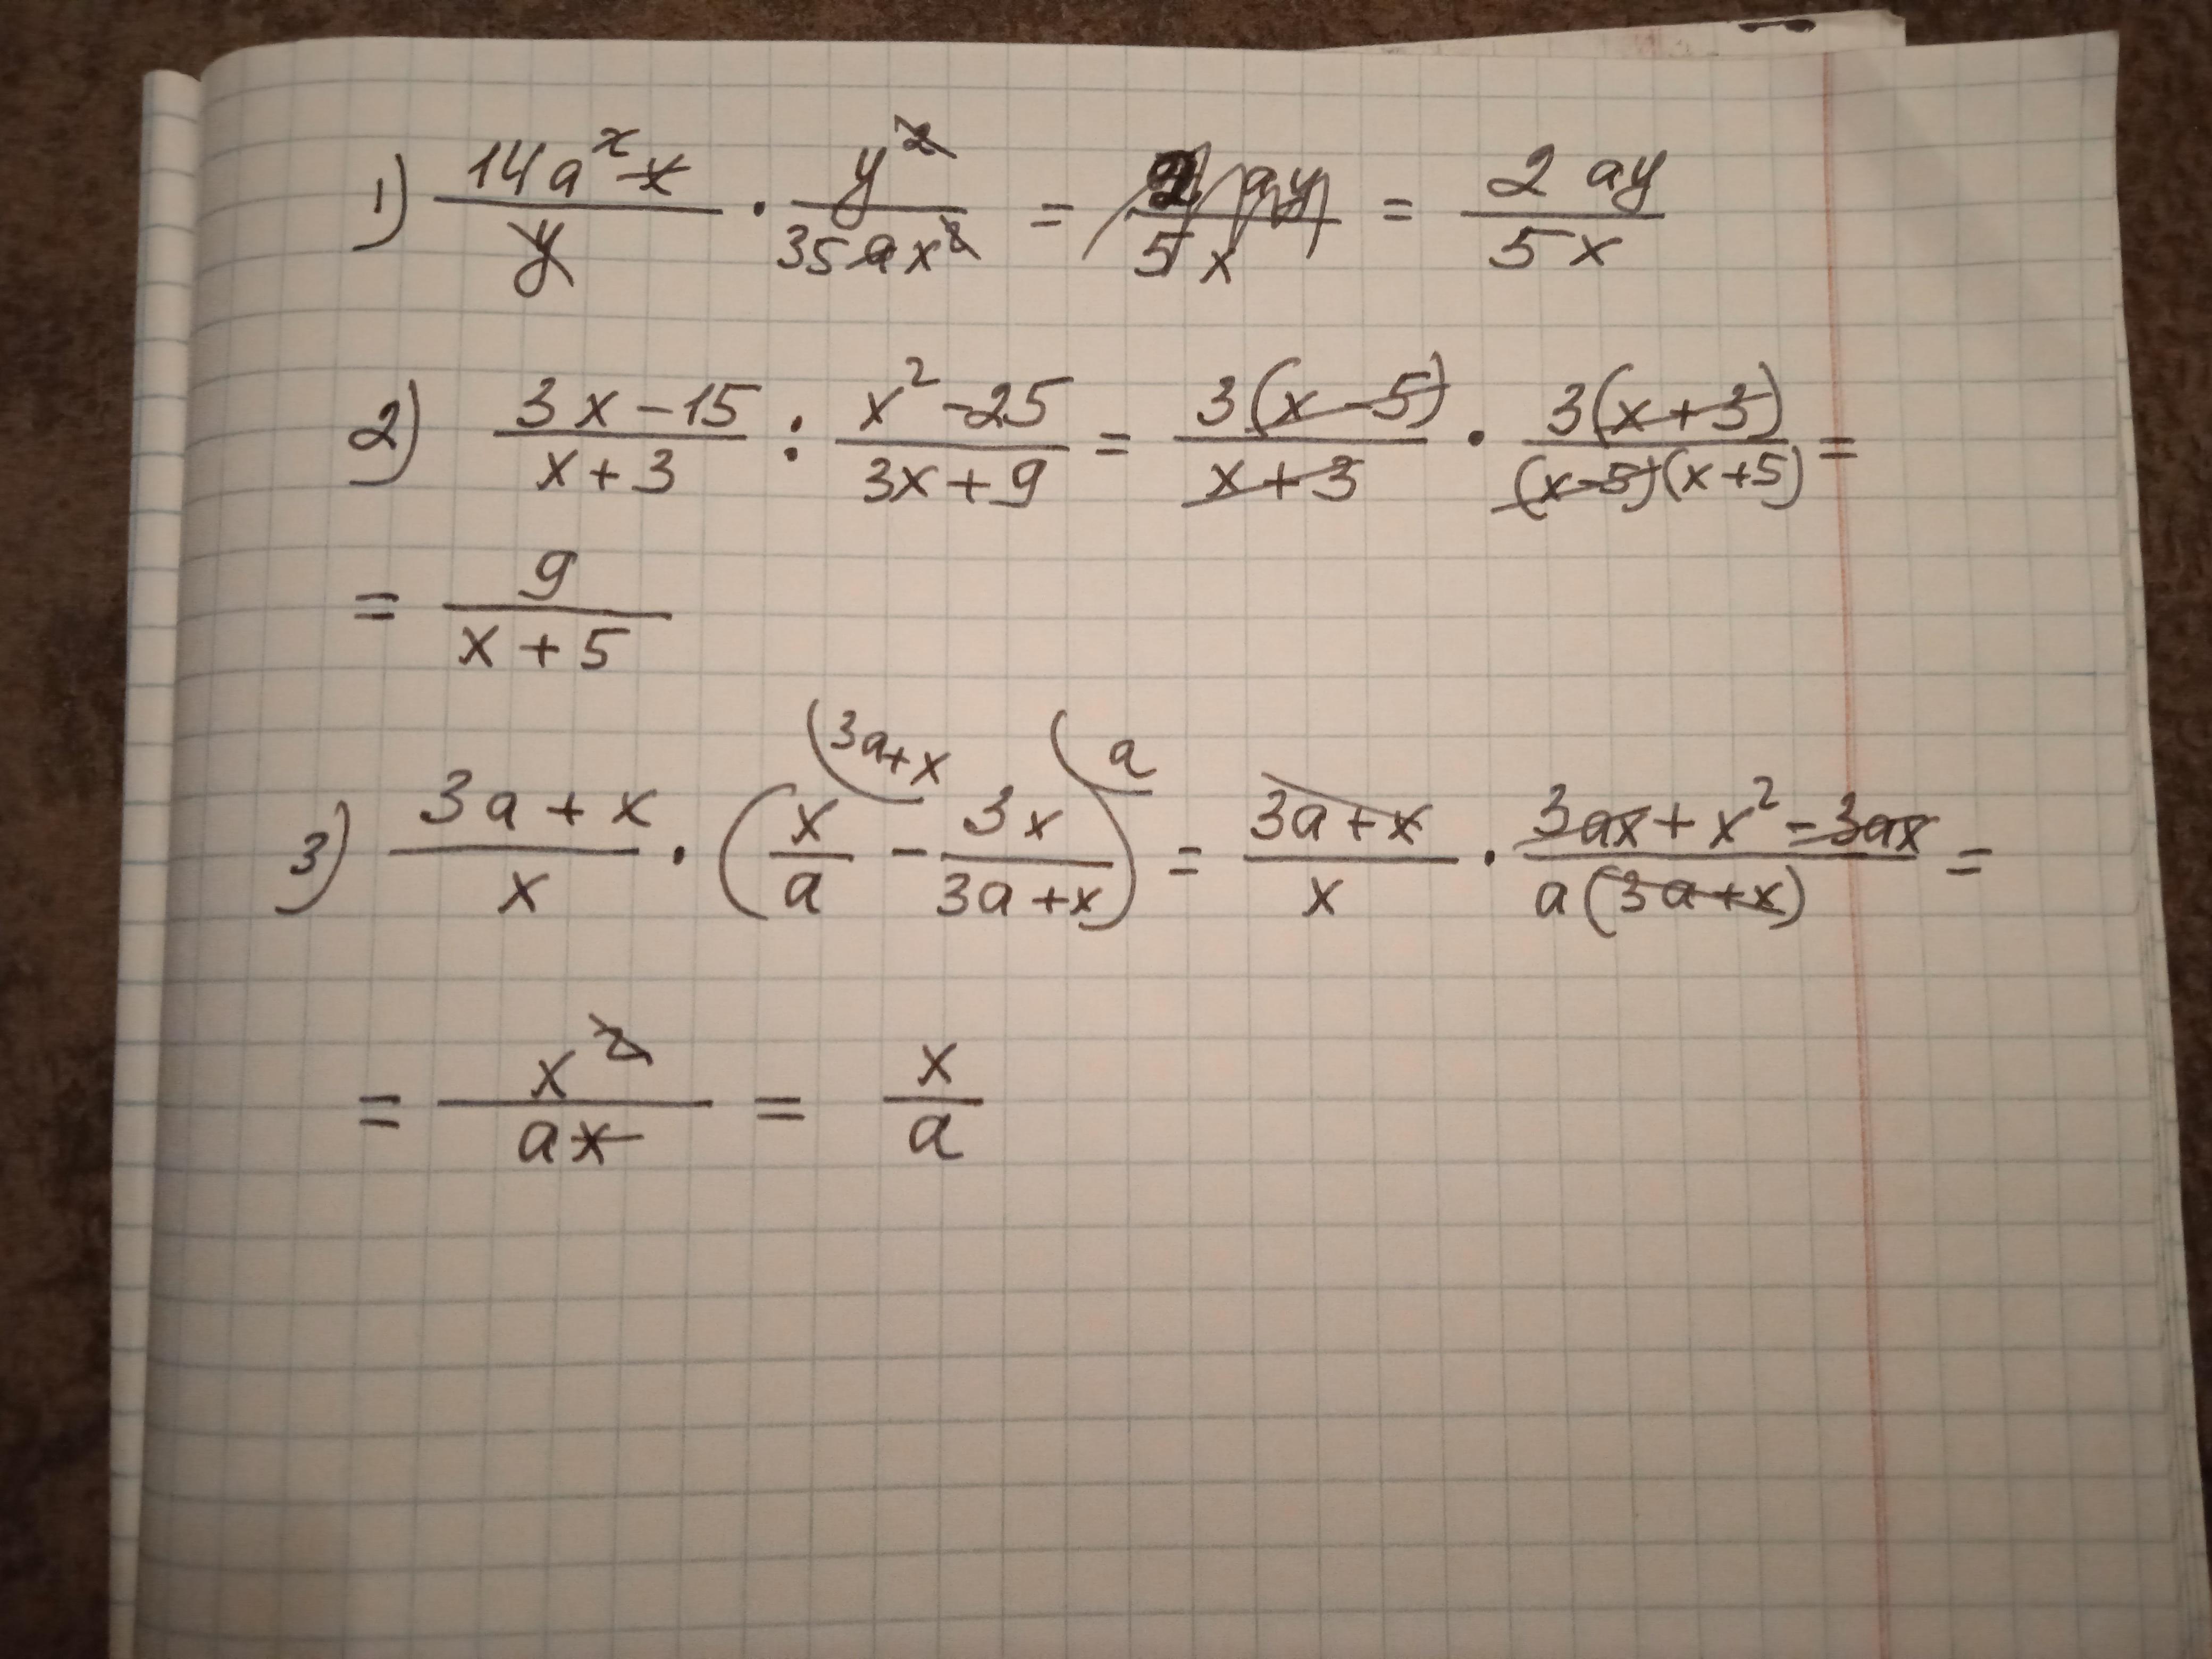 1) \frac{14a^2x}{y} · \frac{y^2}{35ax^2} = \frac{2ay}{5x} = \frac{2ay}{5x}
2) \frac{3x-15}{x+3} : \frac{x^2-25}{3x+9} = \frac{3(x-5)}{x+3} · \frac{3(x+3)}{(x-5)(x+5)} =
= \frac{9}{x+5}
3) \frac{3a+x}{x} · (\frac{x}{a}^{(3a+x} - \frac{3x}{3a+x}^{(a}) = \frac{3a+x}{x} · \frac{3ax+x^2-3ax}{a(3a+x)} =
= \frac{x^2}{ax} = \frac{x}{a}